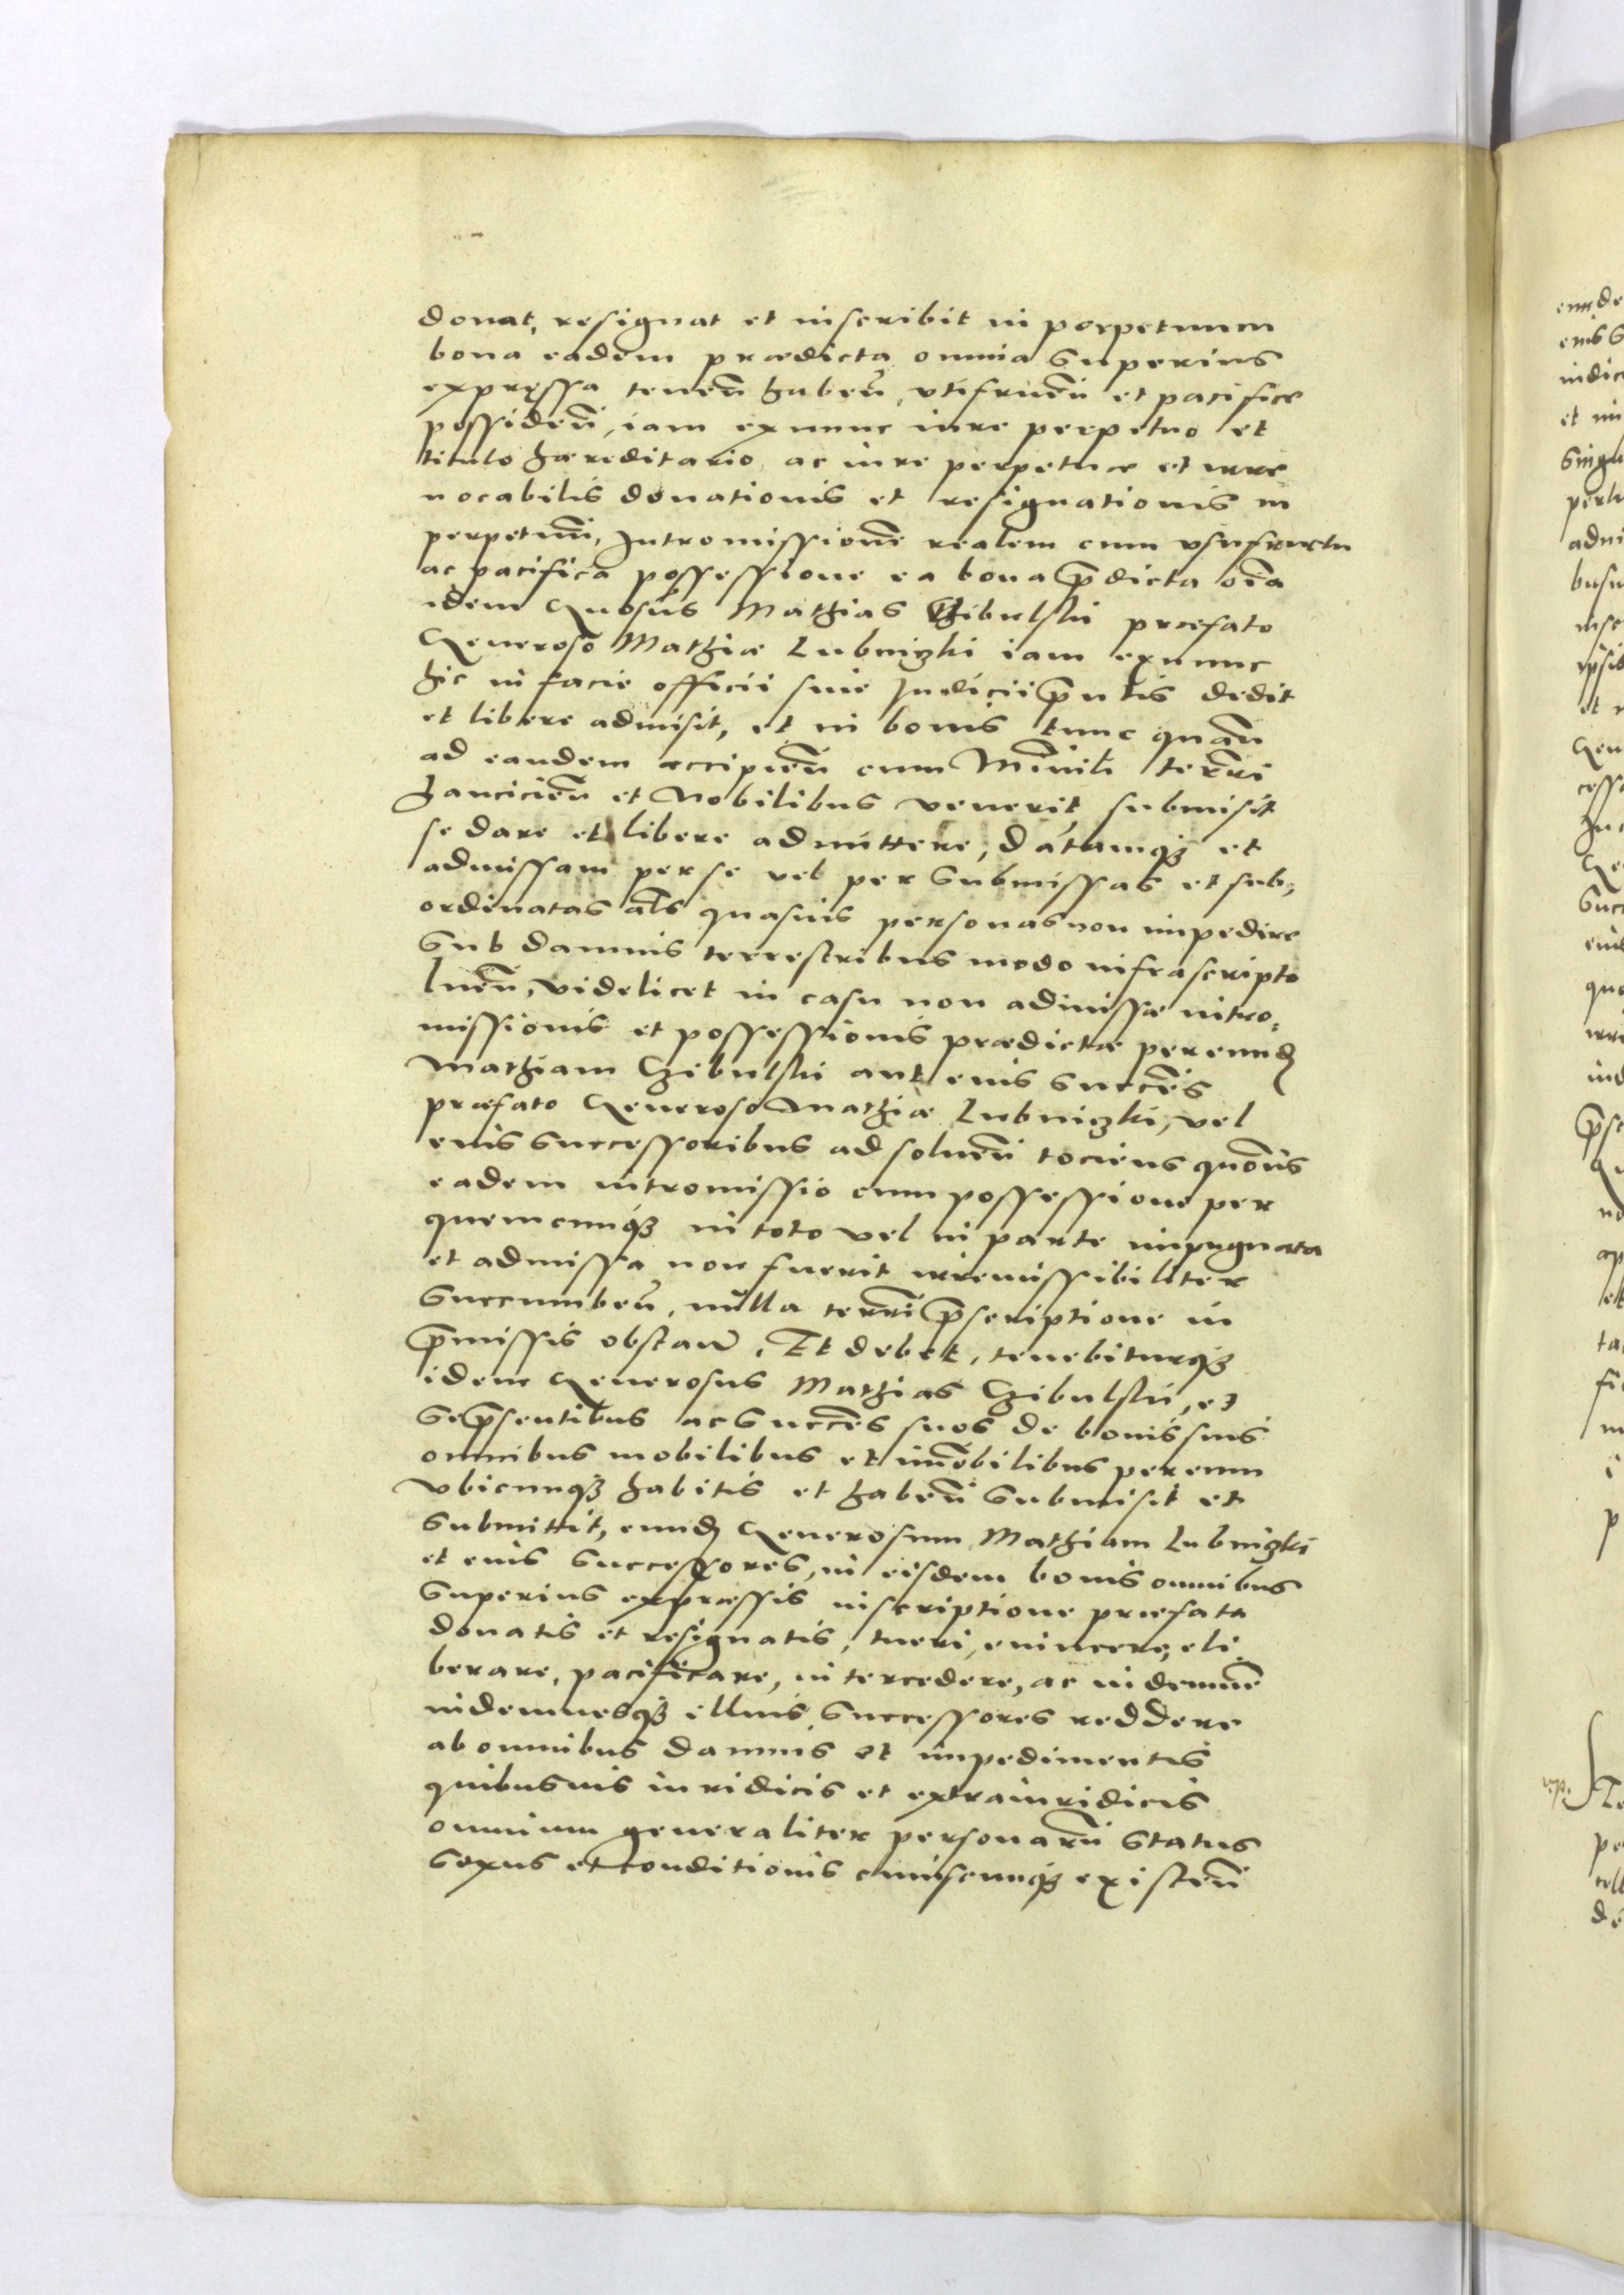 donat, resignat et inscribit in perpetuum
bona eadem prædicta omnia superius
expressa teneñ habeñ, vtifrueñ et pacifice
possideñ, iam exnunc iure perpetuo et
titulo hæreditario, ac iure perpetuæ et irre
uocabilis donationis et resignationis in
perpetuū, Intromissionē realem cum vsufructu
ac pacifica possessione ea bona p̄dicta oīa
idem Gn̄osus Mathias Czibulski præfato
Generoso Mathiæ Lubniczki iam exnunc
hic in facie officii siue Judicii p̄ntis dedit
et libere admisit, et in bonis tunc quān
ad eandem accipieñ cum Miñili terr̄ri
Lanciciēn et Nobilibus venerit, submisit
se dare et libere admittere, datamqꝫ et
admissam per se vel per submissas et sub,
ordinatas als quasuis personas non impedire
sub damnis terrestribus modo infrascripto
lueñ, videlicet in casu non admissæ intro,
missionis et possessionis prædictæ per eund̄
Mathiam Czibulski aut eius succēs
præfato Generoso Mathiæ Lubniczki, vel
eius successoribus ad solueñ tociens quōns
eadem intromissio cum possessione per
quemcunqꝫ in toto vel in parte impugnata
et admissa non fuerit irremissibiliter
succumbeñ, nulla terr̄ri p̄scriptione in
p̄missis obstañ. Et debet, tenebiturqꝫ
idem Generosus Mathias Czibulski, et
se p̄sentibus ac succēs suos de bonis suis
omnibus mobilibus et im̄obilibus per eum
vbicunqꝫ habitis et habeñ submisit et
submittit, eund̄ Generosum Mathiam Lubniczki
et eius successores, in eisdem bonis omnibus
superius expressis inscriptione præfata
donatis et resignatis, tueri, euincere, eli
berare, pacificare, intercedere, ac indemnē
indemnesqꝫ illius successores reddere
ab omnibus damnis et impedimentis
quibusuis iuridicis et extraiuridicis
omnium generaliter personarū status
sexus et conditionis cuiuscunqꝫ existeñ